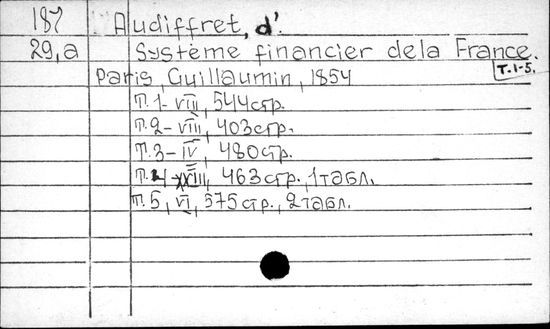 187 Audiffret, d'.
29,a Système financier dela France.
Paris, Guillaumin, 1854 T.1-5.
T.1-VIII, 544стр.
T.2-VIII, 403стр.
T.3-IV, 480стр.
T.4-XXIII, 463стр., 1табл.
T.5, VI, 575стр., 2табл.